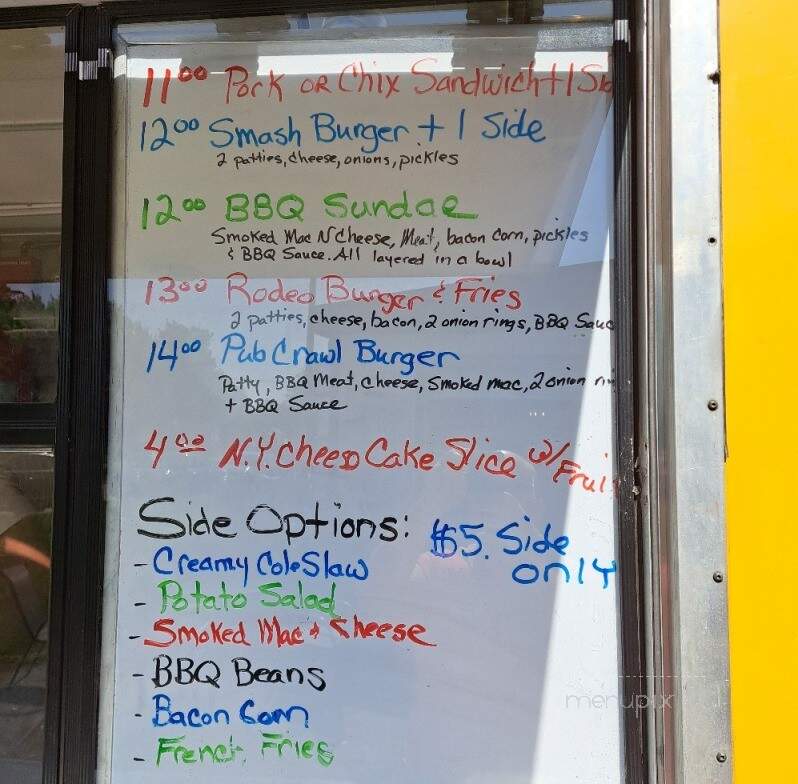 11⁰⁰ Pork or Chix Sandwich + 1 Si
12⁰⁰ Smash Burger + 1 Side
2 patties, cheese, onions, pickles
12⁰⁰ BBQ Sundae
Smoked Mac N Cheese, Meat, bacon corn, pickles
& BBQ Sauce. All layered in a bowl
13⁰⁰ Rodeo Burger & Fries
2 patties, cheese, bacon, 2 onion rings, BBQ Sauc
14⁰⁰ Pub Crawl Burger
Patty, BBQ Meat, cheese, Smoked mac, 2 onion ri
+ BBQ Sauce
4⁰⁰ N.Y. Cheese Cake Slice w/ Frui
Side Options: $5. Side
only
- Creamy Cole Slaw
- Potato Salad
- Smoked Mac & Cheese
- BBQ Beans
- Bacon Corn
- French Fries
menupix